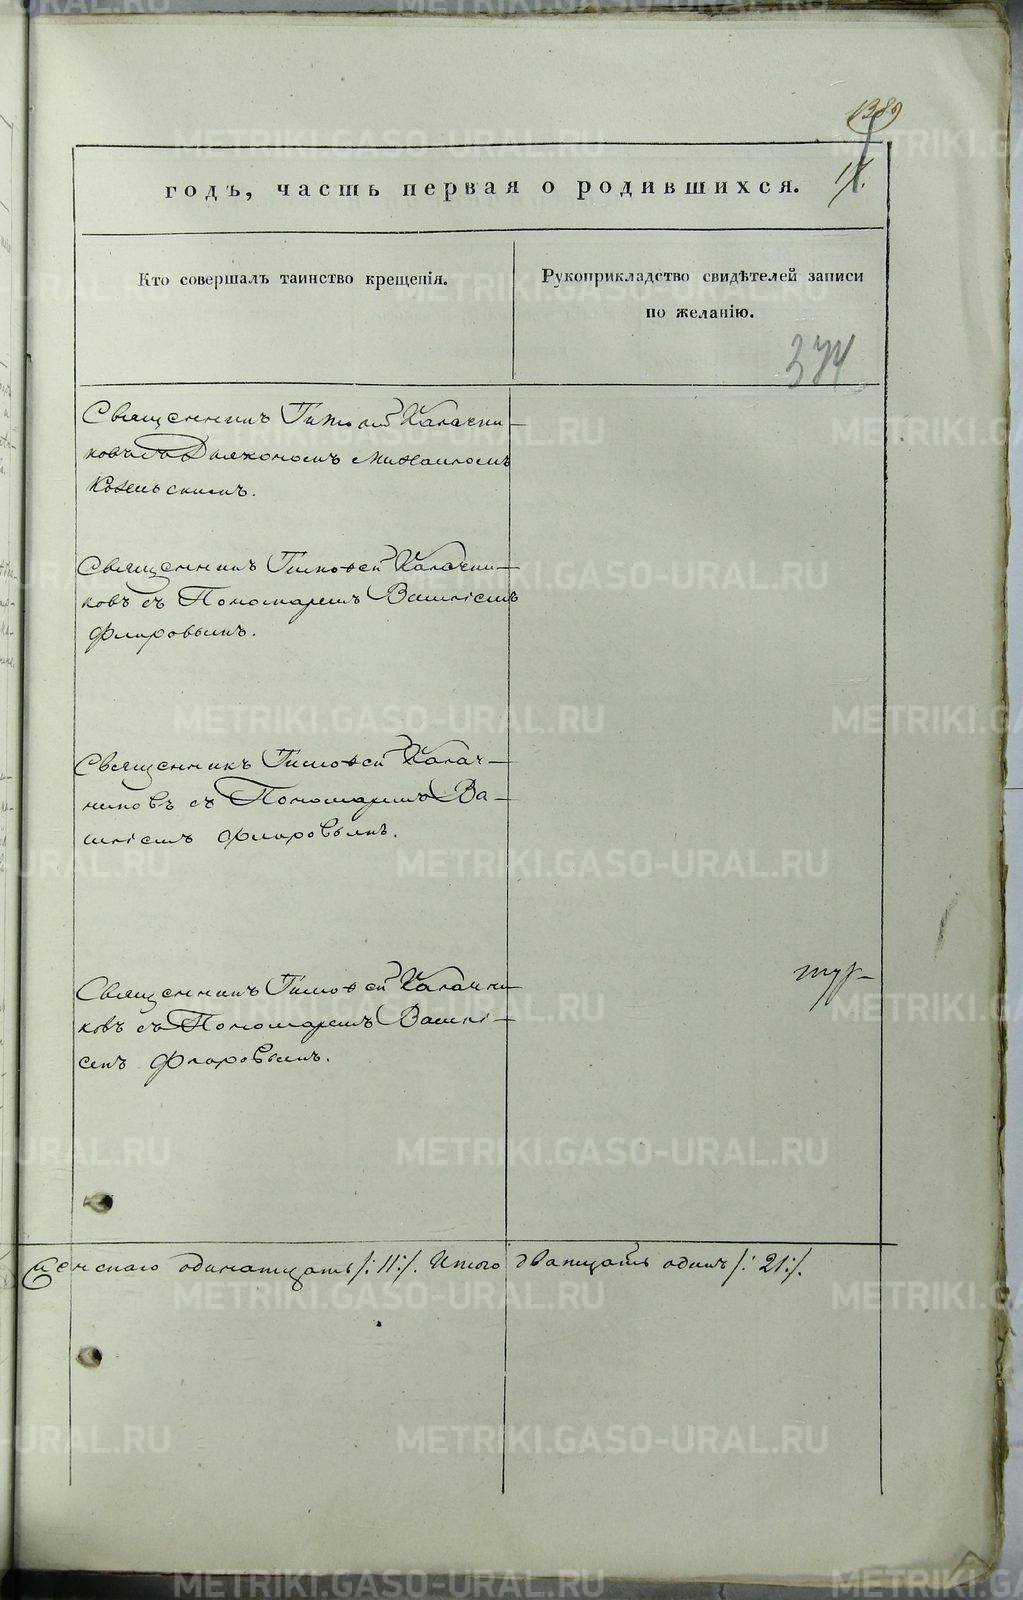 1389
17.
годъ, часть первая о родившихся.
Кто совершалъ таинство крещенія.
Рукоприкладство свидѣтелей записи
по желанію.
374
Священникъ Тимоѳей Калачни-
ковъ съ Діякономъ Михаиломъ
Священникъ Тимоѳей Калачни-
ковъ съ Пономаремъ Ва
Флоровымъ.
Священникъ Тимоѳей Калач-
никовъ съ Пономаремъ Ва-
Флоровымъ.
Священникъ Тимоѳей Калачни-
ковъ съ Пономаремъ
Флоровымъ.
Женскаго одинатцать /:11:/. Итого дватцать одинъ /:21:/.
METRIKI.GASO-URAL.RU